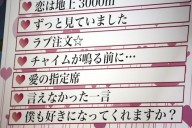 恋は地上3000m
ずっと見ていました
ラブ注文☆
チャイムが鳴る前に…
愛の指定席
言えなかった一言
僕も好きになってくれますか？